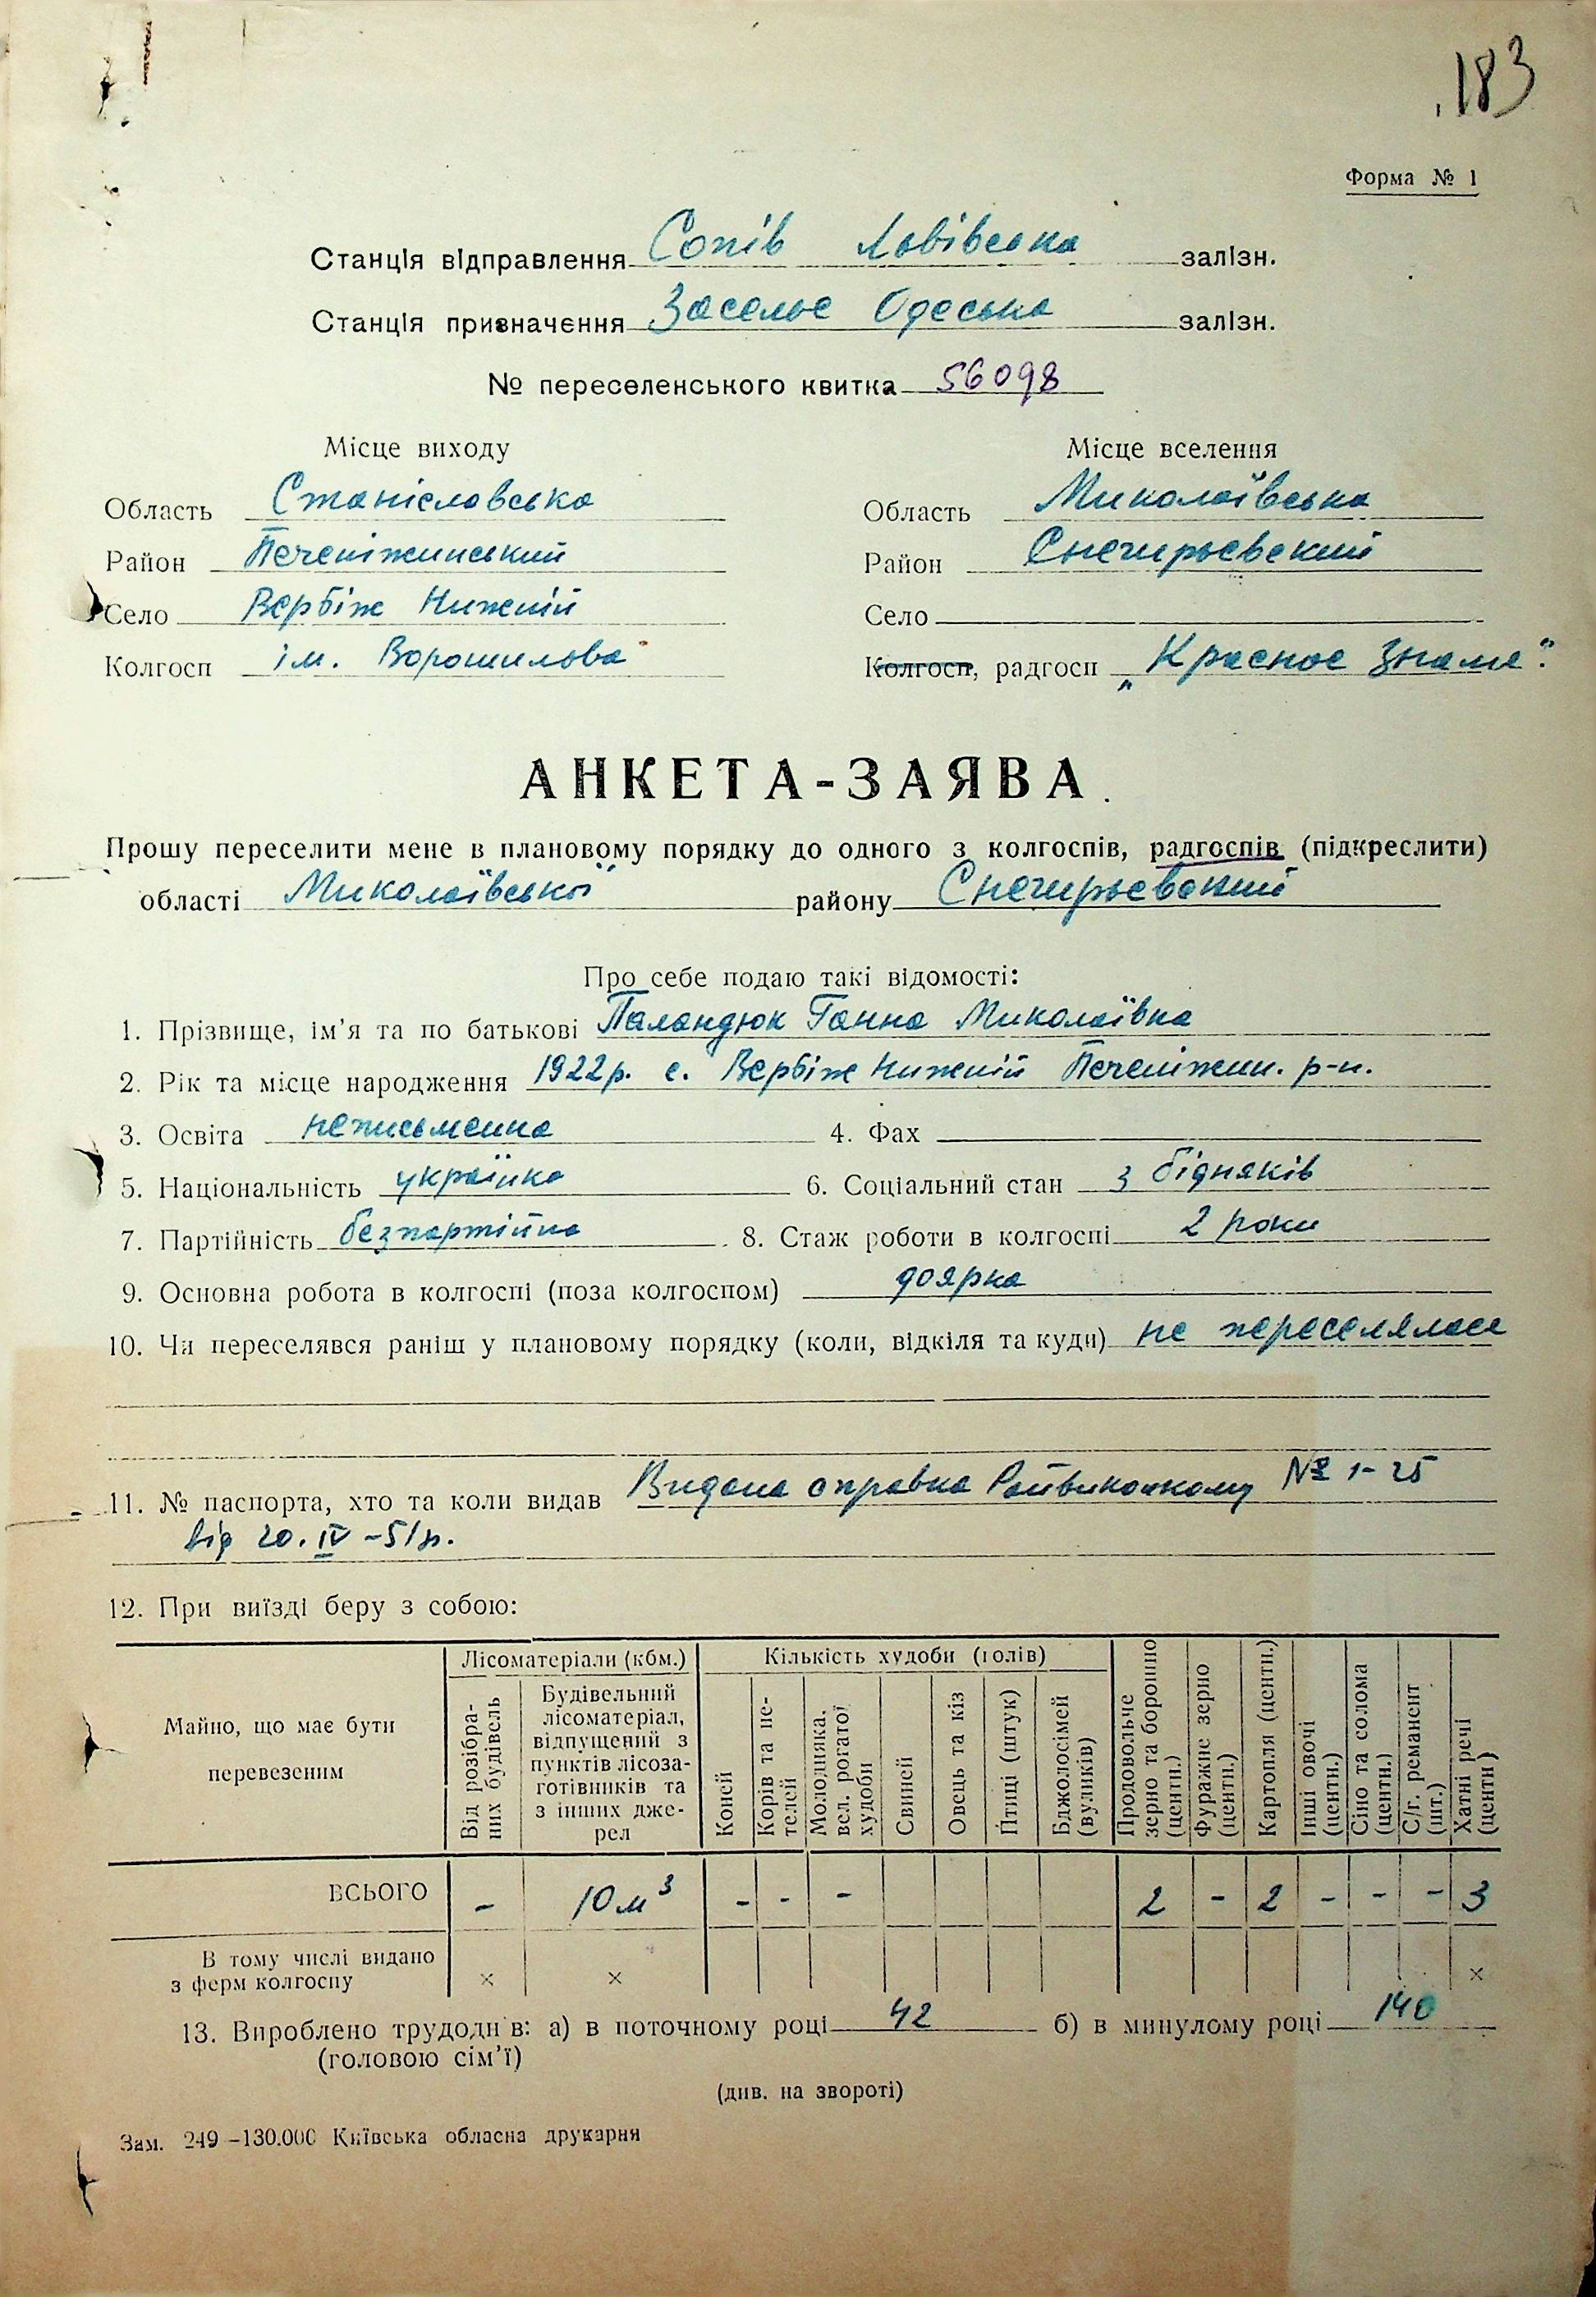 183
Форма № 1
Станція відправлення Сопів Львівська залізн.
Станція призначення Заселье Одеська залізн.
№ переселенського квитка 56098
Місце виходу Місце вселення
Область Станіславська Область Миколаївська
Район Печеніжинський Район Снегирьевский
Село Вербіж Нижній Село
Колгосп ім. Ворошилова Колгосп, радгосп „Красное Знамя".
АНКЕТА-ЗАЯВА
Прошу переселити мене в плановому порядку до одного з колгоспів, радгоспів (підкреслити)
області Миколаївської району Снегирьевский
Про себе подаю такі відомості:
1. Прізвище, ім'я та по батькові Паландюк Ганна Миколаївна
2. Рік та місце народження 1922р. с. Вербіж Нижній Печеніжин. р-н.
3. Освіта неписьменна 4. Фах
5. Національність українка 6. Соціальний стан з бідняків
7. Партійність безпартійна 8. Стаж роботи в колгоспі 2 роки
9. Основна робота в колгоспі (поза колгоспом) доярка
10. Чи переселявся раніш у плановому порядку (коли, відкіля та куди) не переселялася
11. № паспорта, хто та коли видав Видана справка Райвиконкому № 1-25
від 20. IV -51р.
12. При виїзді беру з собою:
Майно, що має бути перевезеним
Лісоматеріали (кбм.)
Від розібраних будівель
Будівельний лісоматеріал, відпущений з пунктів лісозаготівників та з інших джерел
Кількість худоби (голів)
Коней
Корів та нетелей
Молодняка, вел. рогатої худоби
Свиней
Овець та кіз
Птиці (штук)
Бджолосімей (вуликів)
Продовольче зерно та борошно (центн.)
Фуражне зерно (центн.)
Картопля (центн.)
Інші овочі (центн.)
Сіно та солома (центн.)
С/г. реманент (шт.)
Хатні речі (центн)
ВСЬОГО - 10 м³ - - - 2 - 2 - - - 3
В тому числі видано з ферм колгоспу × × ×
13. Вироблено трудоднів: а) в поточному році 42 б) в минулому році 140
(головою сім'ї)
(див. на звороті)
Зам. 249 -130.000 Київська обласна друкарня